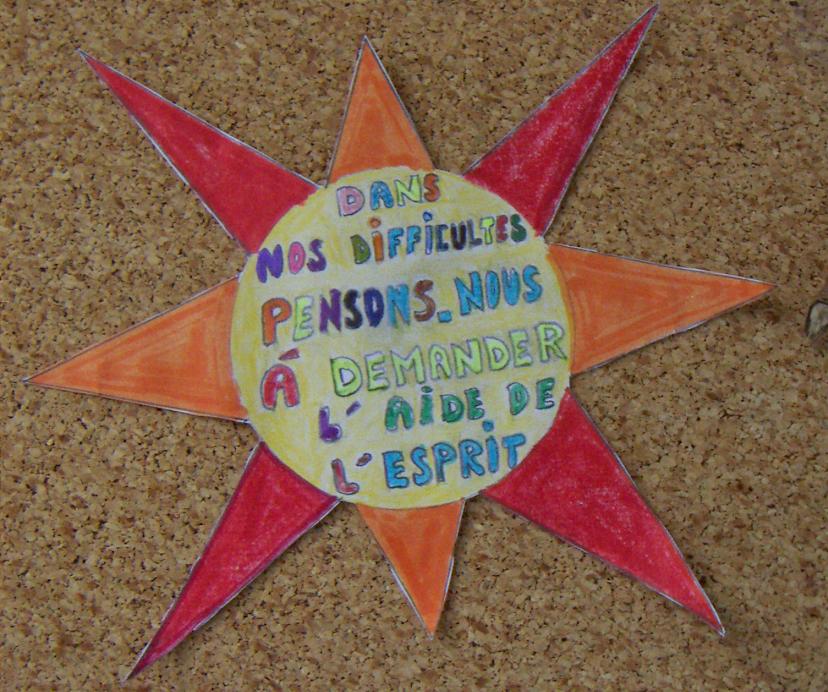 DANS
NOS DiFFiCULTES
PENSONS-NOUS
À DEMANDER
L'AiDE DE
L'ESPRiT